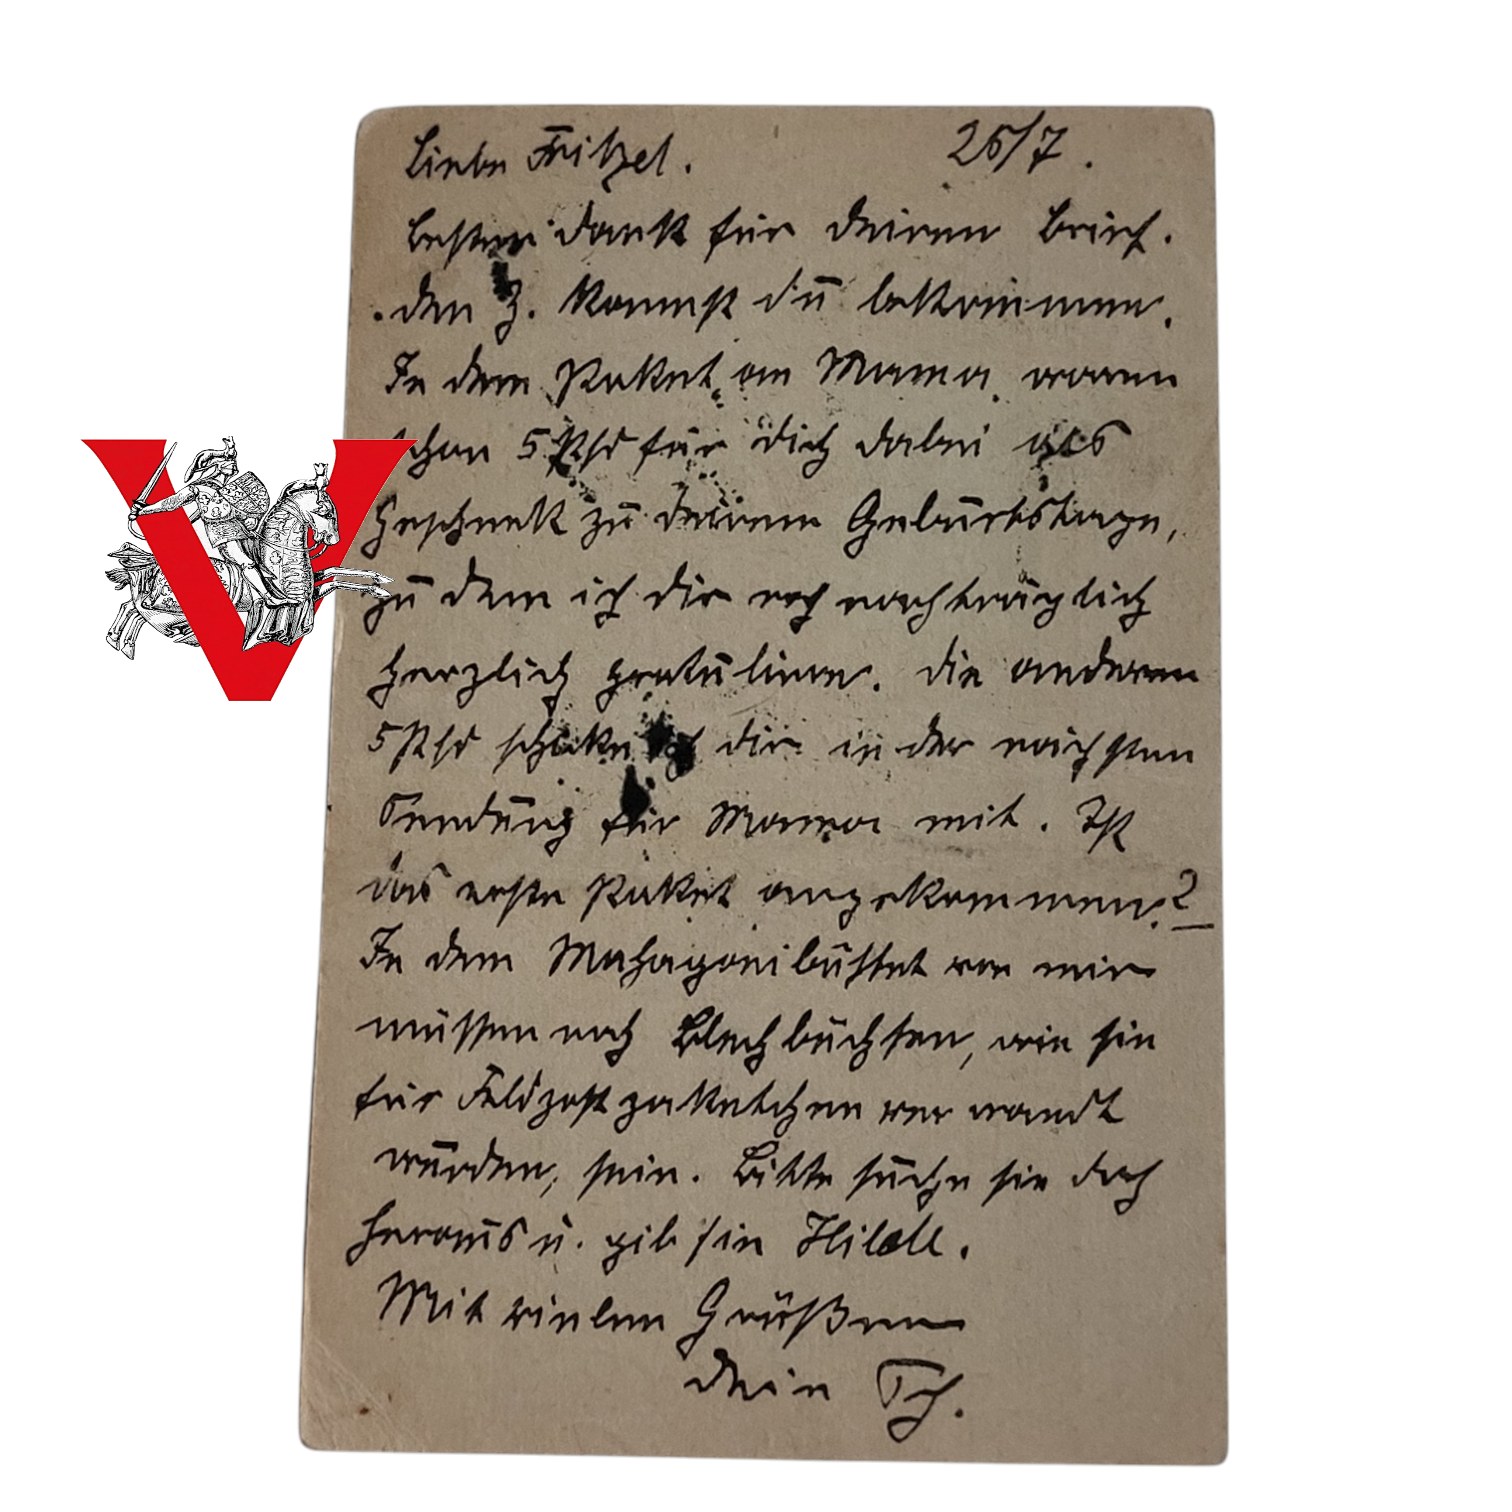 Liebe Fritzel. 26/7.
Besten Dank für deinen Brief.
den Z. kannst du bekommen.
In dem Paket an Mama waren
schon 5 Pfd für dich dabei als
Geschenk zu deinem Geburtstage,
zu dem ich dir noch nachträglich
herzlich gratuliere. Die anderen
5 Pfd schicke ich dir in der nächsten
Sendung für Mama mit. Ist
das erste Paket angekommen?
In dem Mahagonibüffet von mir
müssen noch Blechbüchsen, wie sie
für Feldpostpaketchen verwandt
wurden, sein. Bitte suche sie doch
heraus u. gib sie Hilde.
Mit vielen Grüßen
Dein Th.
V